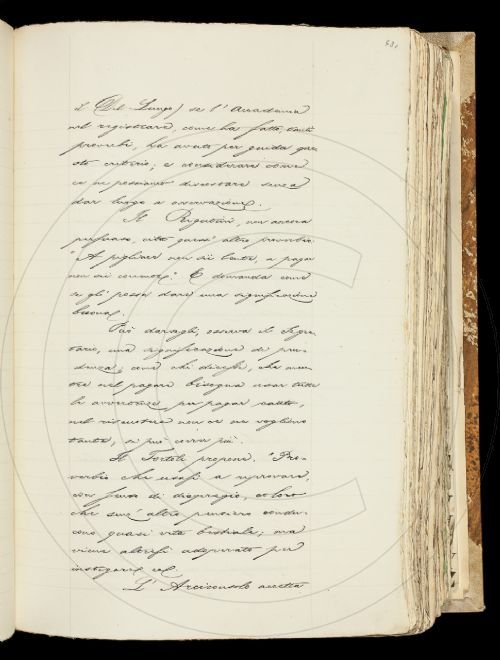 il Del-Lungo) se l'Accademia
nel registrare, come ha fatto, tanti
proverbi, ha avuto per guida que-
sto criterio; e considerare come
ce ne possiamo discostare senza
dar luogo a osservazioni.
Il Rigutini, non ancora
persuaso, cita quest'altro proverbio:
"A pigliare non si lento, a pagar
non esser corrente." E domanda come
se gli possa dare una significazione
buona.
Può darsegli, osserva il Segre-
tario, una significazione di pru-
denza; cioè chi dicesse, che men-
tre nel pagare bisogna usar tutte
le avvertenze per pagar cauto,
nel riscuotere non ce ne vogliono
tante, si può correr più.
Il Tortoli propone: "Pro-
verbio che usasi a riprovare,
con senso di dispregio, coloro
che senz'altro pensiero condu-
cono quasi vita bestiale; ma
viene altresì adoperato per
instigare ec.
L'Arciconsolo accetta